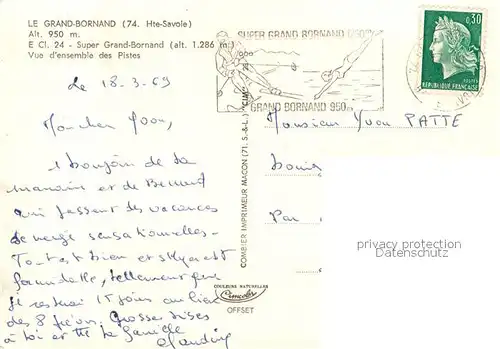 LE GRAND-BORNAND (74. Hte-Savoie)
Alt. 950 m.
E Cl. 24 - Super Grand-Bornand (alt. 1.286 m.)
Vue d'ensemble des Pistes
SUPER GRAND BORNAND
GRAND BORNAND 950m
0,30
POSTES
REPUBLIQUE FRANÇAISE
Le 18-3-69
Mon cher Yvon,
1 bonjour de la
maman et de Bernard
qui passent des vacances
de neige sensationnelles -
Tout est bien et Skyer est
formidable, tellement que
je resterai 15 jours au lieu
des 8 prévu. Grosses bises
à toi et ttte la famille
Monsieur Yvon PATTE
Par
COMBIER IMPRIMEUR MACON (71. S.-&-L.) "CIM"
COULEURS NATURELLES
Cimcolor
OFFSET
privacy protection
Datenschutz